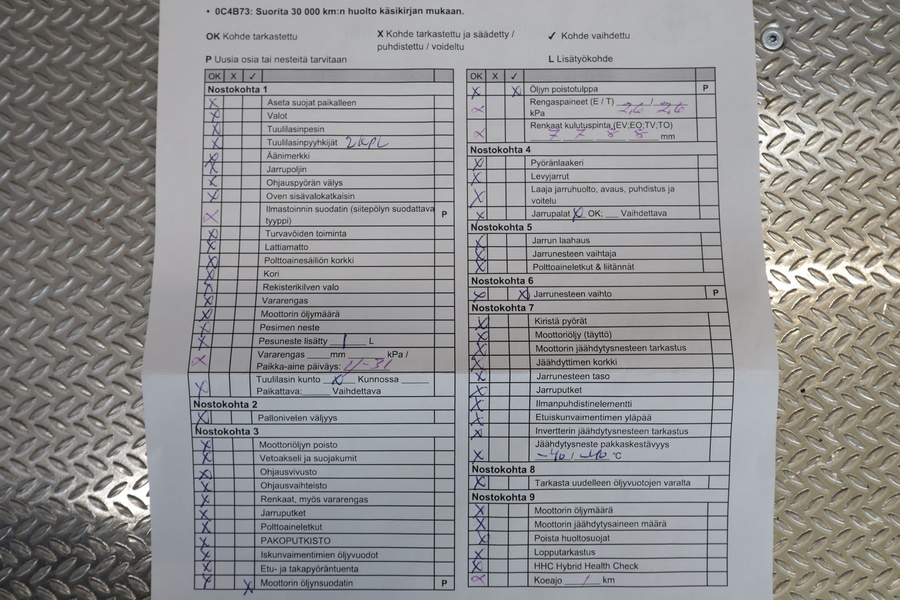 • 0C4B73: Suorita 30 000 km:n huolto käsikirjan mukaan.
OK Kohde tarkastettu
X Kohde tarkastettu ja säädetty /
puhdistettu / voideltu
✓ Kohde vaihdettu
P Uusia osia tai nesteitä tarvitaan
L Lisätyökohde
OK X ✓
Nostokohta 1
X Aseta suojat paikalleen
X Valot
X Tuulilasinpesin
X Tuulilasinpyyhkijät 2KPL
X Äänimerkki
X Jarrupoljin
X Ohjauspyörän välys
X Oven sisävalokatkaisin
X Ilmastoinnin suodatin (siitepölyn suodattava P
tyyppi)
X Turvavöiden toiminta
X Lattiamatto
X Polttoainesäiliön korkki
X Kori
X Rekisterikilven valo
X Vararengas
X Moottorin öljymäärä
X Pesimen neste
X Pesuneste lisätty ___ L
X Vararengas ____mm ____ kPa /
Paikka-aine päiväys: 11-31
X Tuulilasin kunto X Kunnossa ____
Paikattava:____ Vaihdettava
Nostokohta 2
X Pallonivelen väljyys
Nostokohta 3
X Moottoriöljyn poisto
X Vetoakseli ja suojakumit
X Ohjausvivusto
X Ohjausvaihteisto
X Renkaat, myös vararengas
X Jarruputket
X Polttoaineletkut
X PAKOPUTKISTO
X Iskunvaimentimien öljyvuodot
X Etu- ja takapyöräntuenta
X X Moottorin öljynsuodatin P
OK X ✓
X X Öljyn poistotulppa P
X Rengaspaineet (E / T) 2,6 / 2,6
kPa
X Renkaat kulutuspinta (EV;EO;TV;TO)
7 7 8 8 mm
Nostokohta 4
X Pyöränlaakeri
X Levyjarrut
X Laaja jarruhuolto, avaus, puhdistus ja
voitelu
X Jarrupalat X OK; __ Vaihdettava
Nostokohta 5
X Jarrun laahaus
X Jarrunesteen vaihtaja
X Polttoaineletkut & liitännät
Nostokohta 6
X X Jarrunesteen vaihto P
Nostokohta 7
X Kiristä pyörät
X Moottoriöljy (täyttö)
X Moottorin jäähdytysnesteen tarkastus
X Jäähdyttimen korkki
X Jarrunesteen taso
X Jarruputket
X Ilmanpuhdistinelementti
X Etuiskunvaimentimen yläpää
X Invertterin jäähdytysnesteen tarkastus
X Jäähdytysneste pakkaskestävyys
-40 / -40 °C
Nostokohta 8
X Tarkasta uudelleen öljyvuotojen varalta
Nostokohta 9
X Moottorin öljymäärä
X Moottorin jäähdytysaineen määrä
X Poista huoltosuojat
X Lopputarkastus
X HHC Hybrid Health Check
X Koeajo ___ km